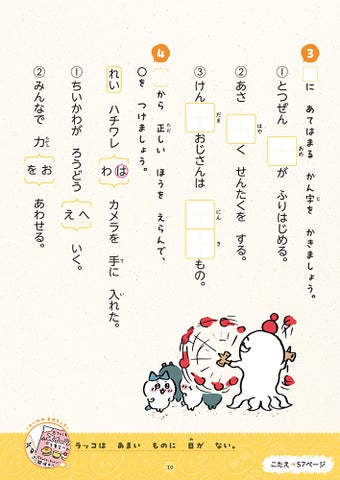 3 □に あてはまる かん字を かきましょう。
じ
①とつぜん □が ふりはじめる。
あめ
②あさ □く せんたくを する。
はや
③けん □おじさんは □□もの。
だま にん き
4 から 正しい ほうを えらんで、
ただ
○を つけましょう。
れい ハチワレ は わ カメラを 手に 入れた。
て い
①ちいかわが ろうどう へ え いく。
②みんなで 力 お を あわせる。
ちから
ラッコは あまい ものに 目が ない。
10
こたえ→57ページ